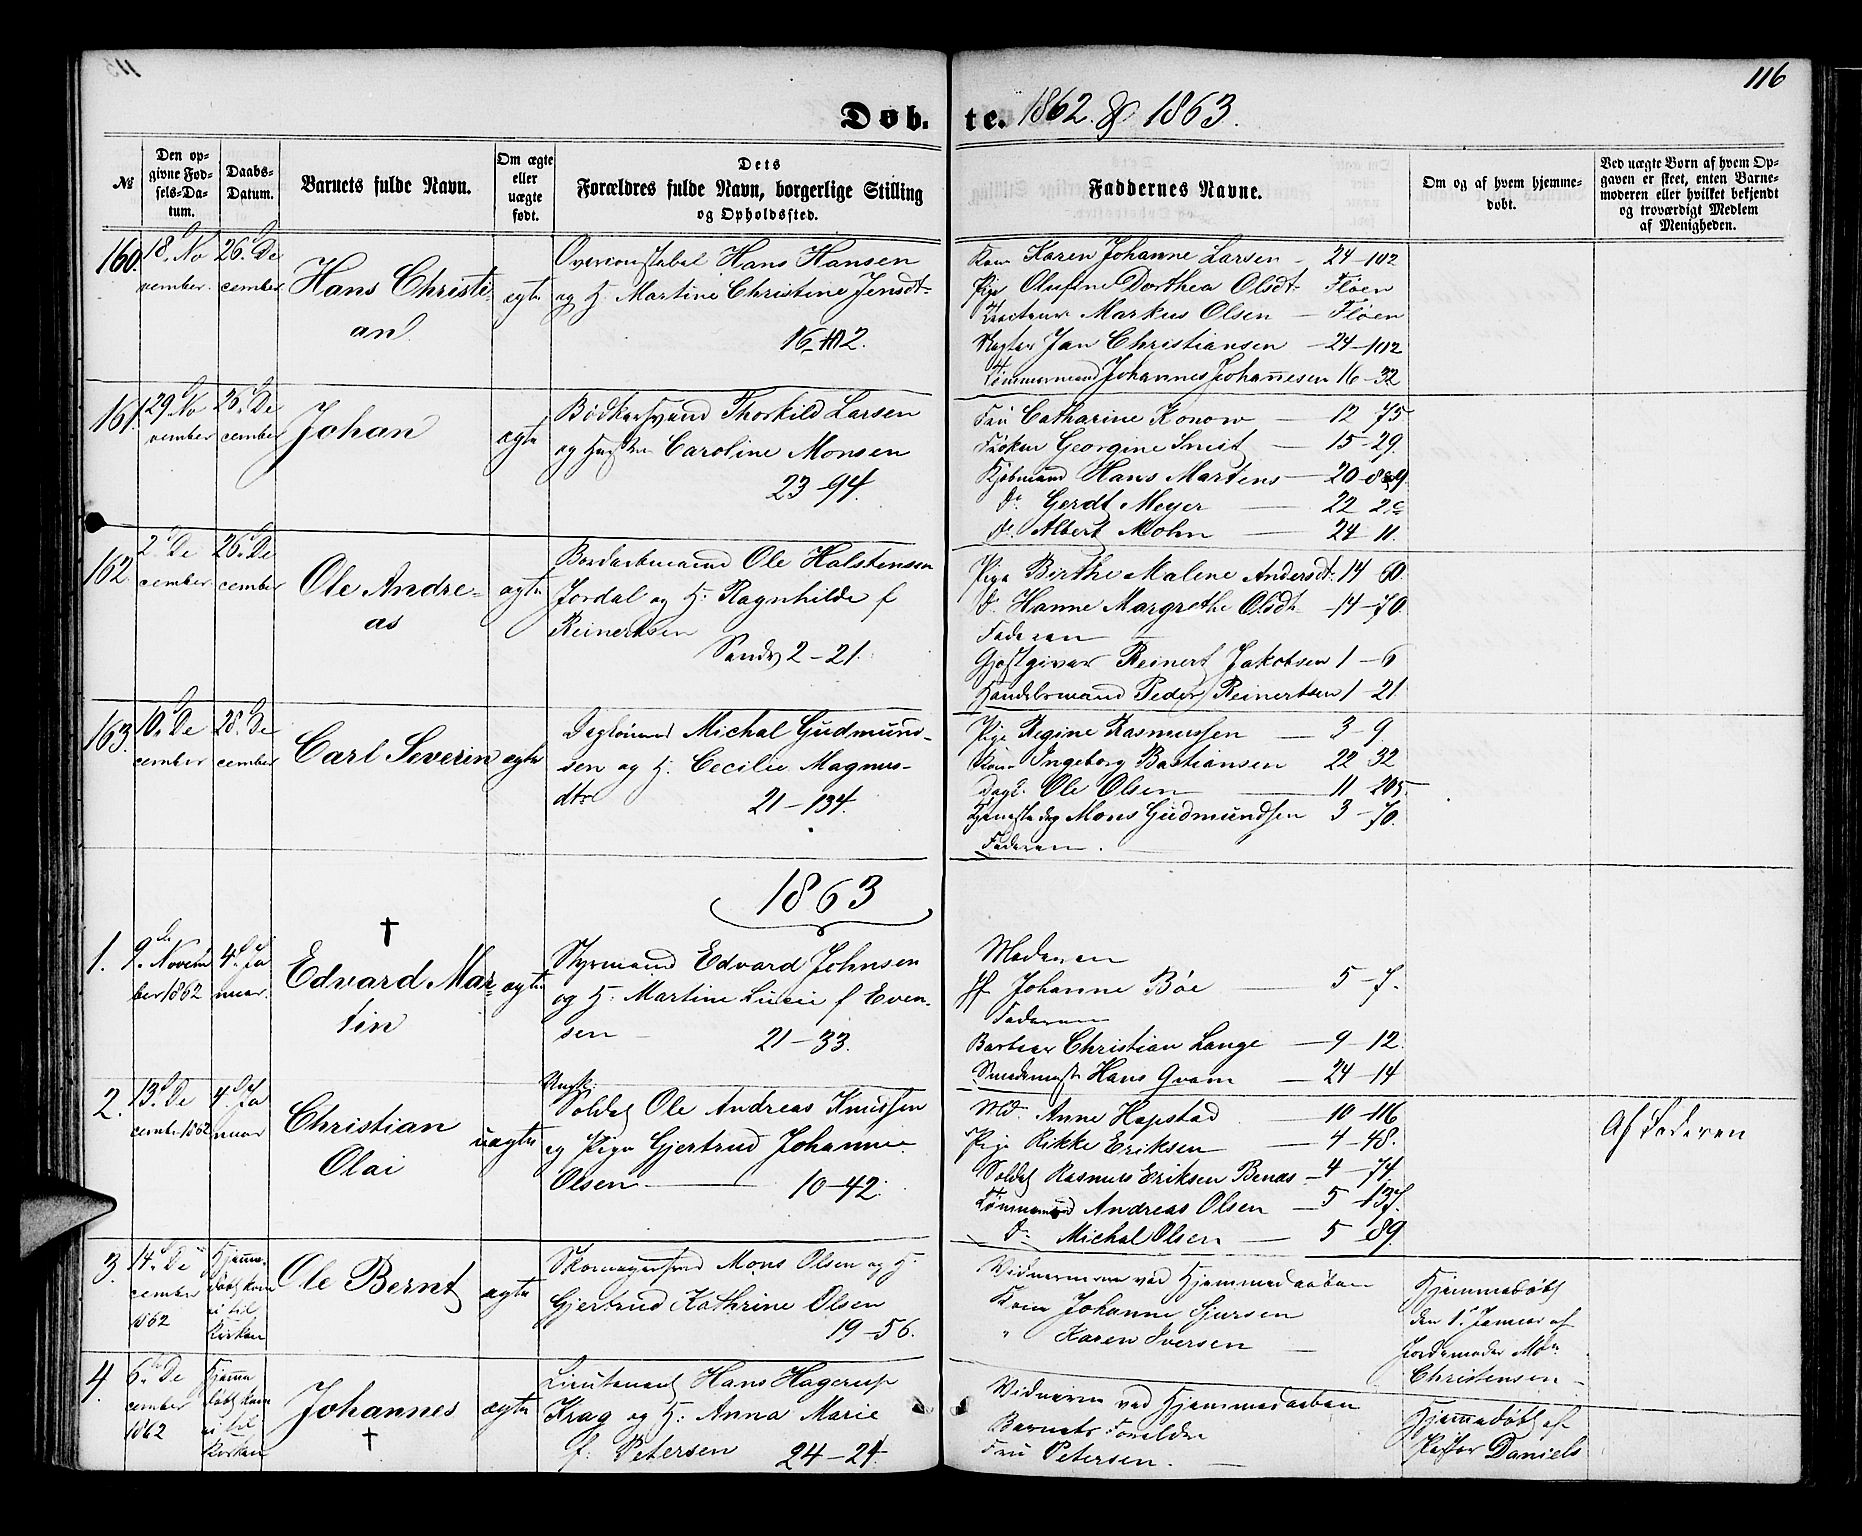 116
Døb- te. 1862 & 1863.
№
Den opgivne Fødsels-Datum.
Daabs-Datum.
Barnets fulde Navn.
Om ægte eller uægte født.
Dets Forældres fulde Navn, borgerlige Stilling og Opholdssted.
Faddernes Navne.
Om og af hvem hjemmedøbt.
Ved uægte Børn af hvem Opgaven er skeet, enten Barnemoderen eller hvilket bekjendt og troværdigt Medlem af Menigheden.
160. 18. November. 26. December
Hans Christian
ægte
Overconstabel Hans Hansen
og H. Martine Christine Jensdt.
16-102.
Kone Karen Johanne Larsen - 24-102
Pige Olufine Dorthea Olsdt. Fløen
Markus Olsen - Fløen
Vægter Jan Christiansen - 24-102
Tømmermand Johannes Johannesen 16-32
161. 29. November 26. December
Johan
ægte
Bødkersvend Thorkild Larsen
og Hustru Caroline Monsen
23-94.
Fru Catharine Konow - 12 75.
Frøken Georgine Smit - 15-29.
Kjøbmand Hans Martens - 20-
do. Gerdt Meyer - 22
do. Albert Mohn - 24-11.
162. 2. December 26. December
Ole Andreas
ægte
Ole Halstensen
Jordal og H. Ragnhilde f
Reinertsen
2-21.
Pige Birthe Malene Andersdt. 14 60.
d. Hanne Margrethe Olsdt. -14-70.
Faderen
Gjæstgiver Reinert Jakobsen 1-6
Handelsmand Peder Reinertsen 1-21.
163. 10. December 28. December
Carl Severin
ægte
Dagløner Michal Gudmundsen
og H. Cecilie Magnusdtr
21-134.
Pige Regine Rasmussen - 3-9.
Kone Ingeborg Bastiansen 22 32
Dagl. Ole Olsen - 11-205.
Mons Gudmundsen 3-70.
Faderen.
1863
1. 9de November 1862 4. Januar.
†
Edvard Martin
ægte
Styrmand Edvard Johnsen
og H. Martine Lucie f Evensen
21-33.
Moderen
Jf Johanne Bøe - 5-7.
Faderen
Barbeer Christian Lange - 9-12.
Smedemest. Hans Qvam - 24-14
2. 13. December 1862 4. Januar
Christian Olai
uægte
Ungk:
Soldat Ole Andreas Knudsen
og Pige Gjertrud Johanne
Olsen - 10-42.
Md. Anne Hopstad - 10-116
Pige Rikke Eriksen - 4-48.
Soldat Rasmus Eriksen Benæs -4-74.
Tømmermd Andreas Olsen - 5-137.
do. Michal Olsen - 5 89.
Af Faderen
3. 14. December 1862 Hjemmedøbt kom ei til Kirken
Ole Bernt
ægte
Skomagersvend Mons Olsen og H.
Gjertrud Kathrine Olsen
19-56.
Vidnerne ved Hjemmedaaben
Kone Johanne Sjursen
" Karen Iversen -
Hjemmedøbt
den 1. Januar af
Jordemoder Mdm.
Christensen
4. 6. December 1862 Hjemmedøbt kom ei til Kirken
Johannes
†
ægte
Lieutenant Hans Hagerup
Krag og H. Anna Marie
f. Petersen 24-24.
Vidnerne ved Hjemmedaaben
Barnets Forældre
Fru Petersen.
Hjemmedøbt af
Pastor Daniels